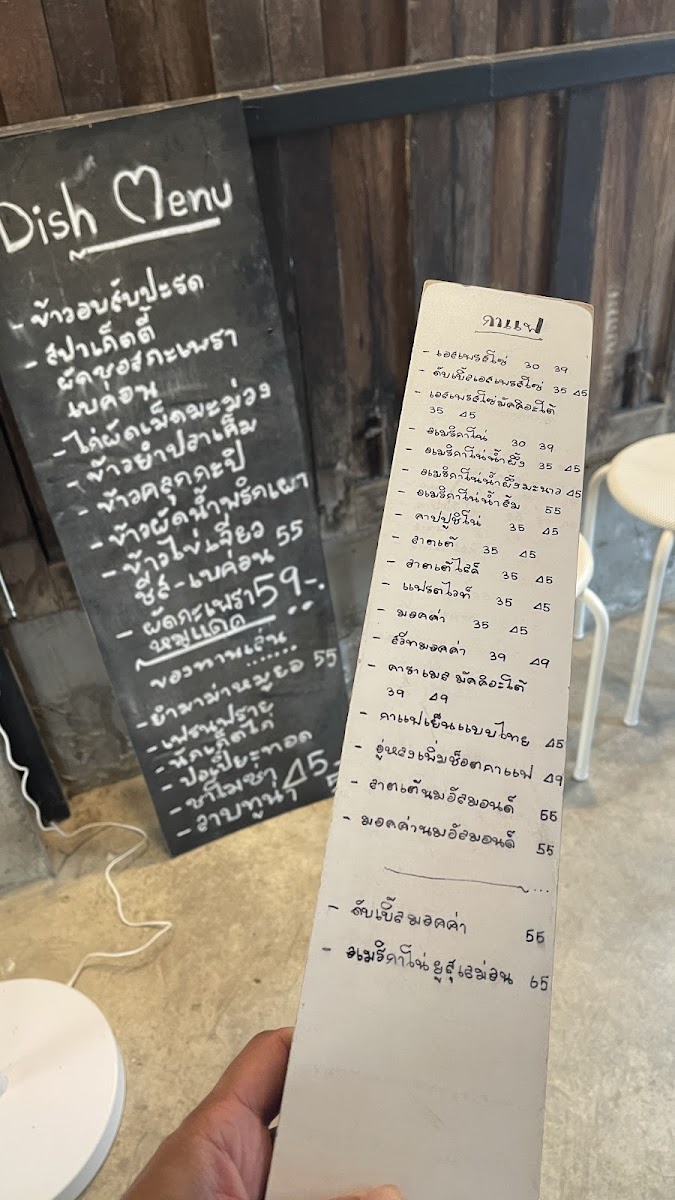 Dish Menu
- ข้าวอบสับปะรด
- สปาเก็ตตี้
ผัดซอสกะเพรา
เบค่อน
- ไก่ผัดเม็ดมะม่วง
- ข้าวยำปลาเค็ม
- ข้าวคลุกกะปิ
- ข้าวผัดน้ำพริกเผา
- ข้าวไข่เจียว
ชีส-เบค่อน 55
- ผัดกะเพรา 59.-
หมูแดด
ของทานเล่น
- ยำมาม่าหมูยอ 55
- เฟรนฟราย
- นักเก็ตไก่
- ปอเปี๊ยะทอด
- ซาโมซา 45
- ลาบทูน่า
กาแฟ
- เอสเพรสโซ่ 30 39
- ดับเบิ้ลเอสเพรสโซ่ 35 45
- เอสเพรสโซ่มัคคิอะโต้
35 45
- อเมริกาโน่ 30 39
- อเมริกาโน่น้ำผึ้ง 35 45
- อเมริกาโน่น้ำผึ้งมะนาว 45
- อเมริกาโน่น้ำส้ม 55
- คาปปูชิโน่ 35 45
- ลาตเต้ 35 45
- ลาตเต้ไลค์ 35 45
- แฟรตไวท์ 35 45
- มอคค่า 35 45
- สวีทมอคค่า 39 49
- คาราเมล มัคคิอะโต้
39 49
- กาแฟเย็นแบบไทย 45
- อู่หลงเพิ่มช็อตกาแฟ 49
- ลาตเต้นมอัลมอนด์ 55
- มอคค่านมอัลมอนด์ 55
- ดับเบิ้ลมอคค่า 55
- อเมริกาโน่ ยูสุเลม่อน 65